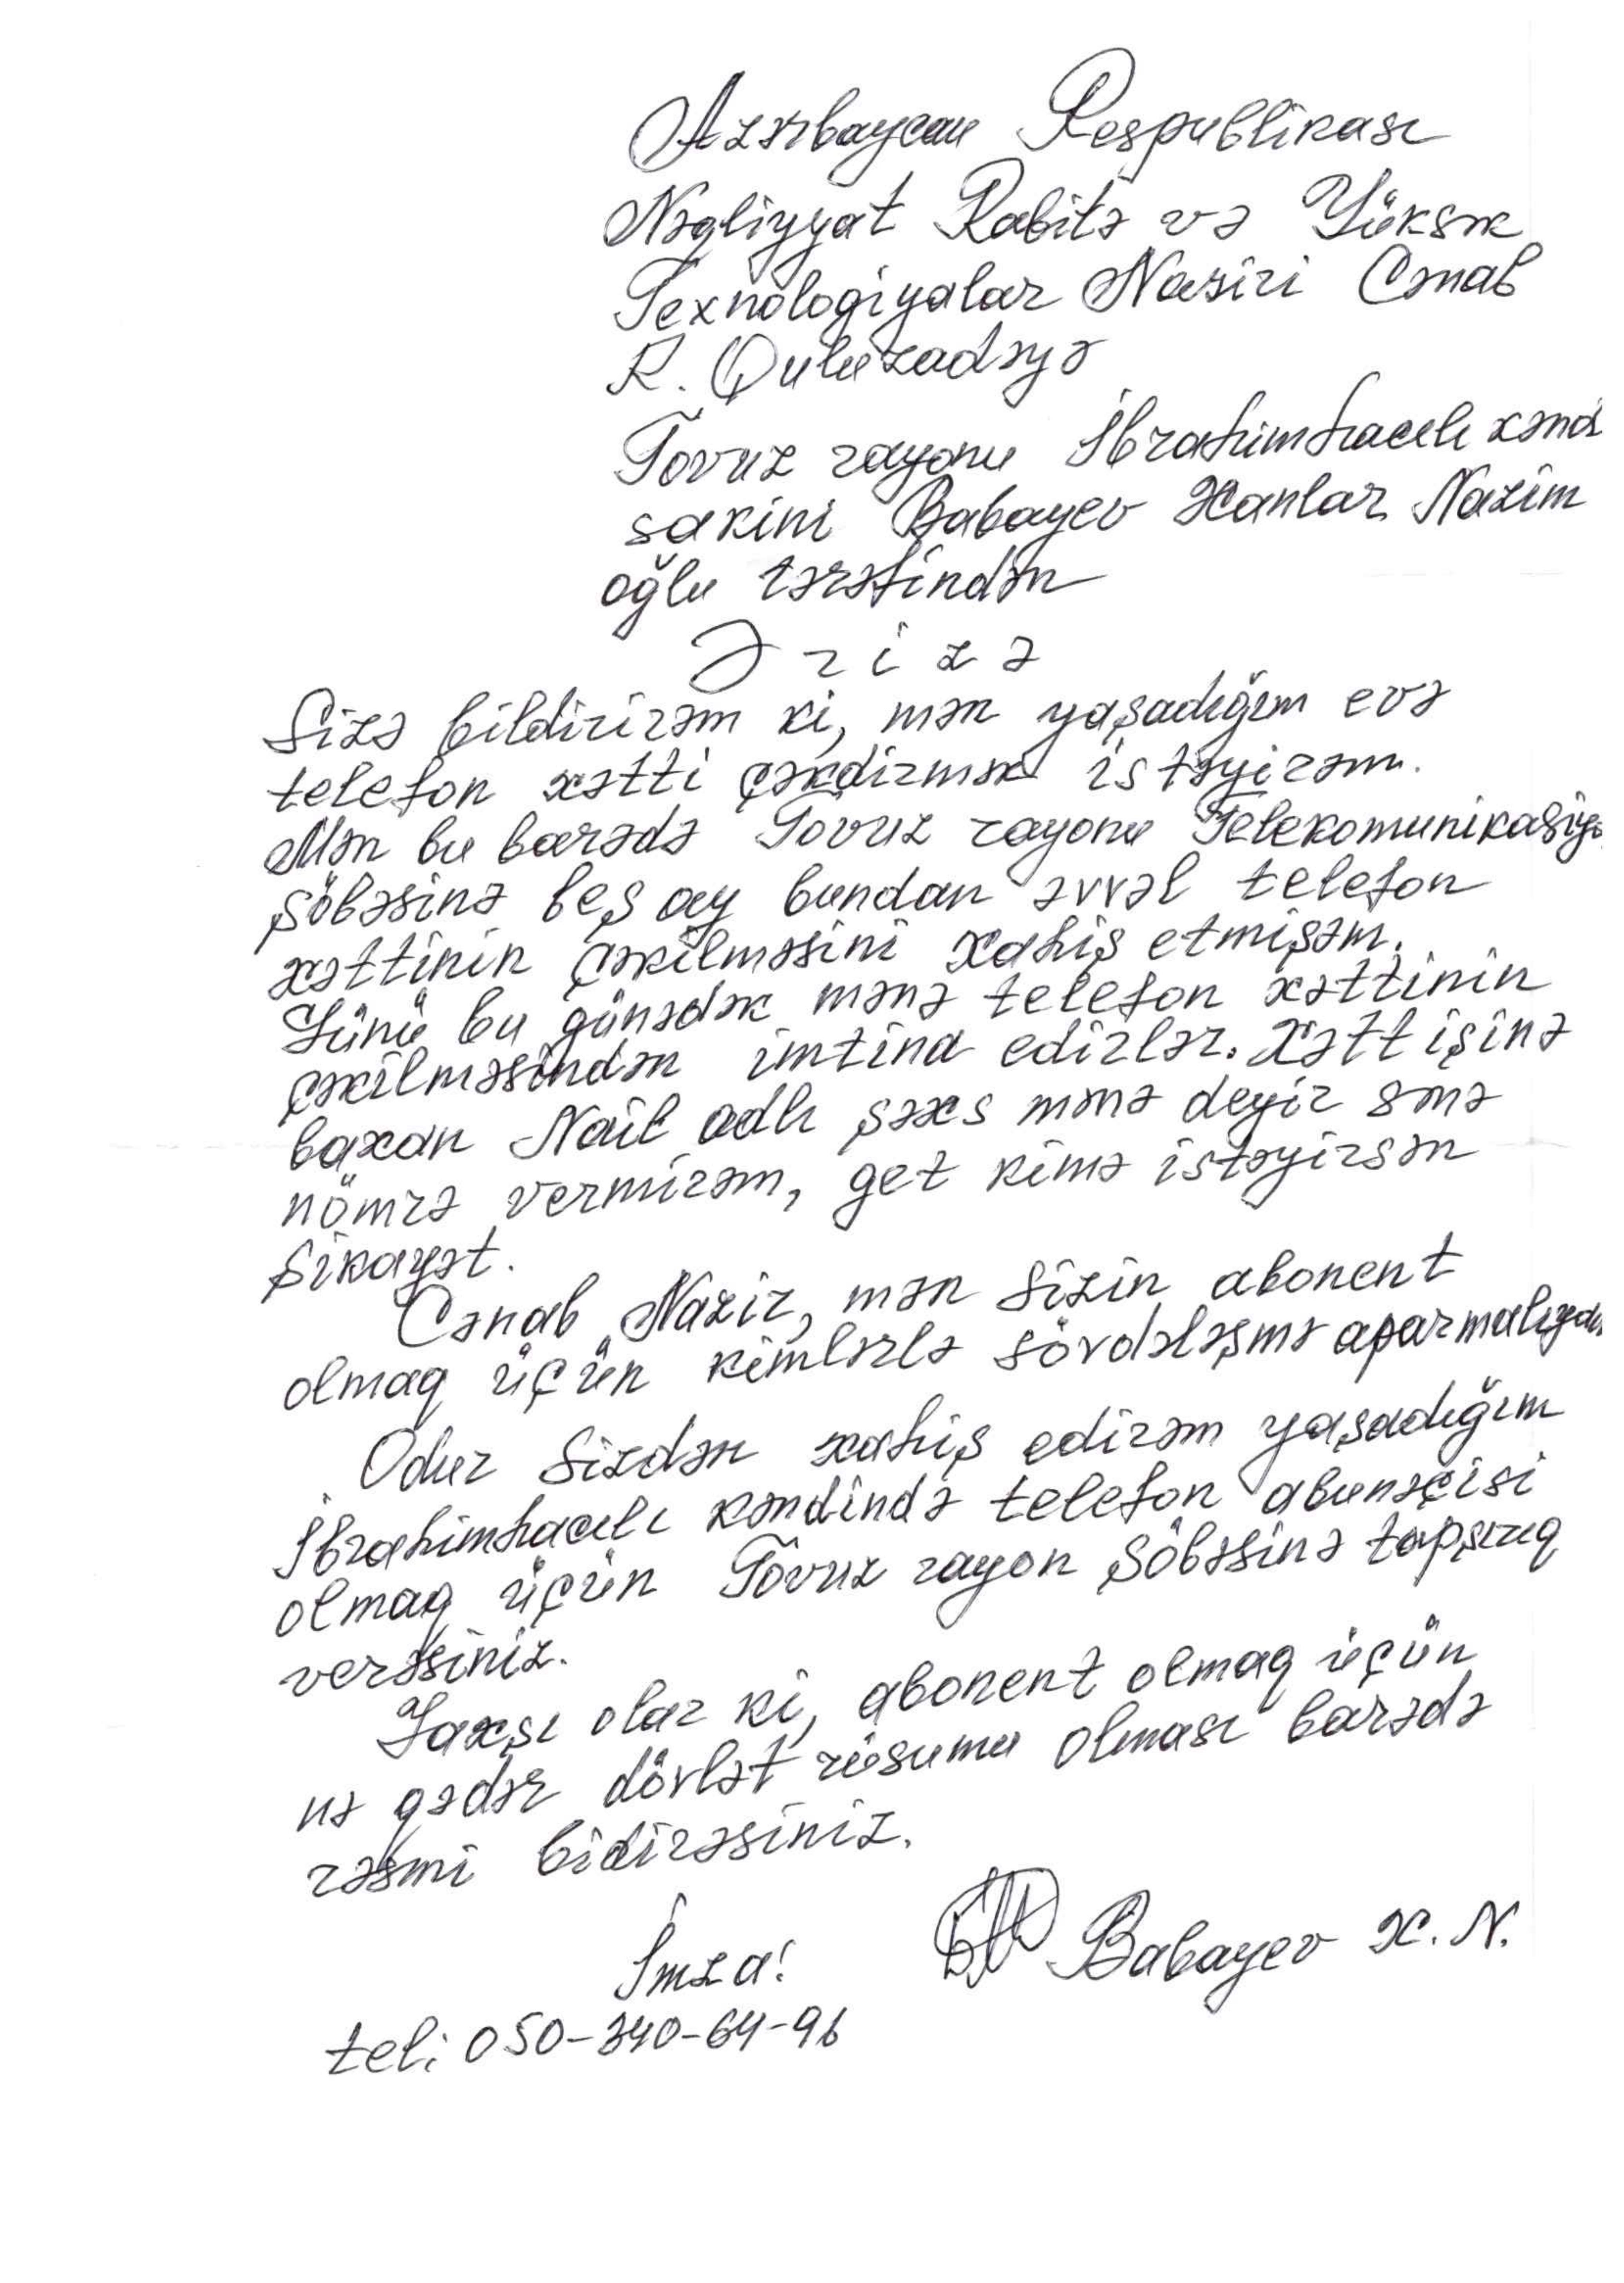 Azərbaycan Respublikası
Nəqliyyat Rabitə və Yüksək
Texnologiyalar Naziri Cənab
R. Quluzadəyə
Tovuz rayonu İbrahimhacılı kənd
sakini Babayev Xanlar Nazim
oğlu tərəfindən
Ə r i z ə
Sizə bildirirəm ki, mən yaşadığım evə
telefon xətti çəkdirmək istəyirəm.
Mən bu barədə Tovuz rayonu Telekomunikasiya
şöbəsinə beş ay bundan əvvəl telefon
xəttinin çəkilməsini xahiş etmişəm.
Günü bu günədək mənə telefon xəttinin
çəkilməsindən imtina edirlər. Xətt işinə
baxan Nail adlı şəxs mənə deyir sənə
nömrə vermirəm, get kimə istəyirsən
şikayət.
Cənab Nazir, mən Sizin abonent
olmaq üçün kimlərlə sövdələşmə aparmalıyam
Odur Sizdən xahiş edirəm yaşadığım
İbrahimhacılı kəndində telefon abunəçisi
olmaq üçün Tovuz rayon şöbəsinə tapşırıq
verəsiniz.
Yaxşı olar ki, abonent olmaq üçün
nə qədər dövlət rüsumu olması barədə
rəsmi bidirəsiniz.
İmza: Babayev X. N.
tel: 050-340-64-96